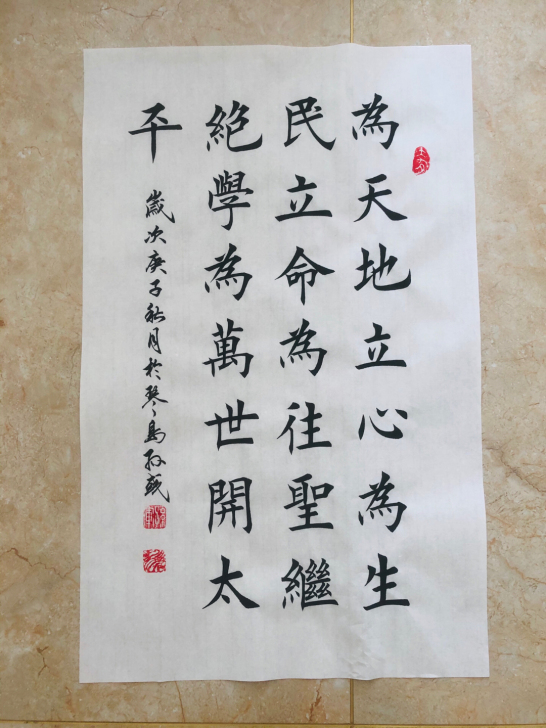 為天地立心為生
民立命為往聖繼
絕學為萬世開太
平
歲次庚子秋月於琴島孫